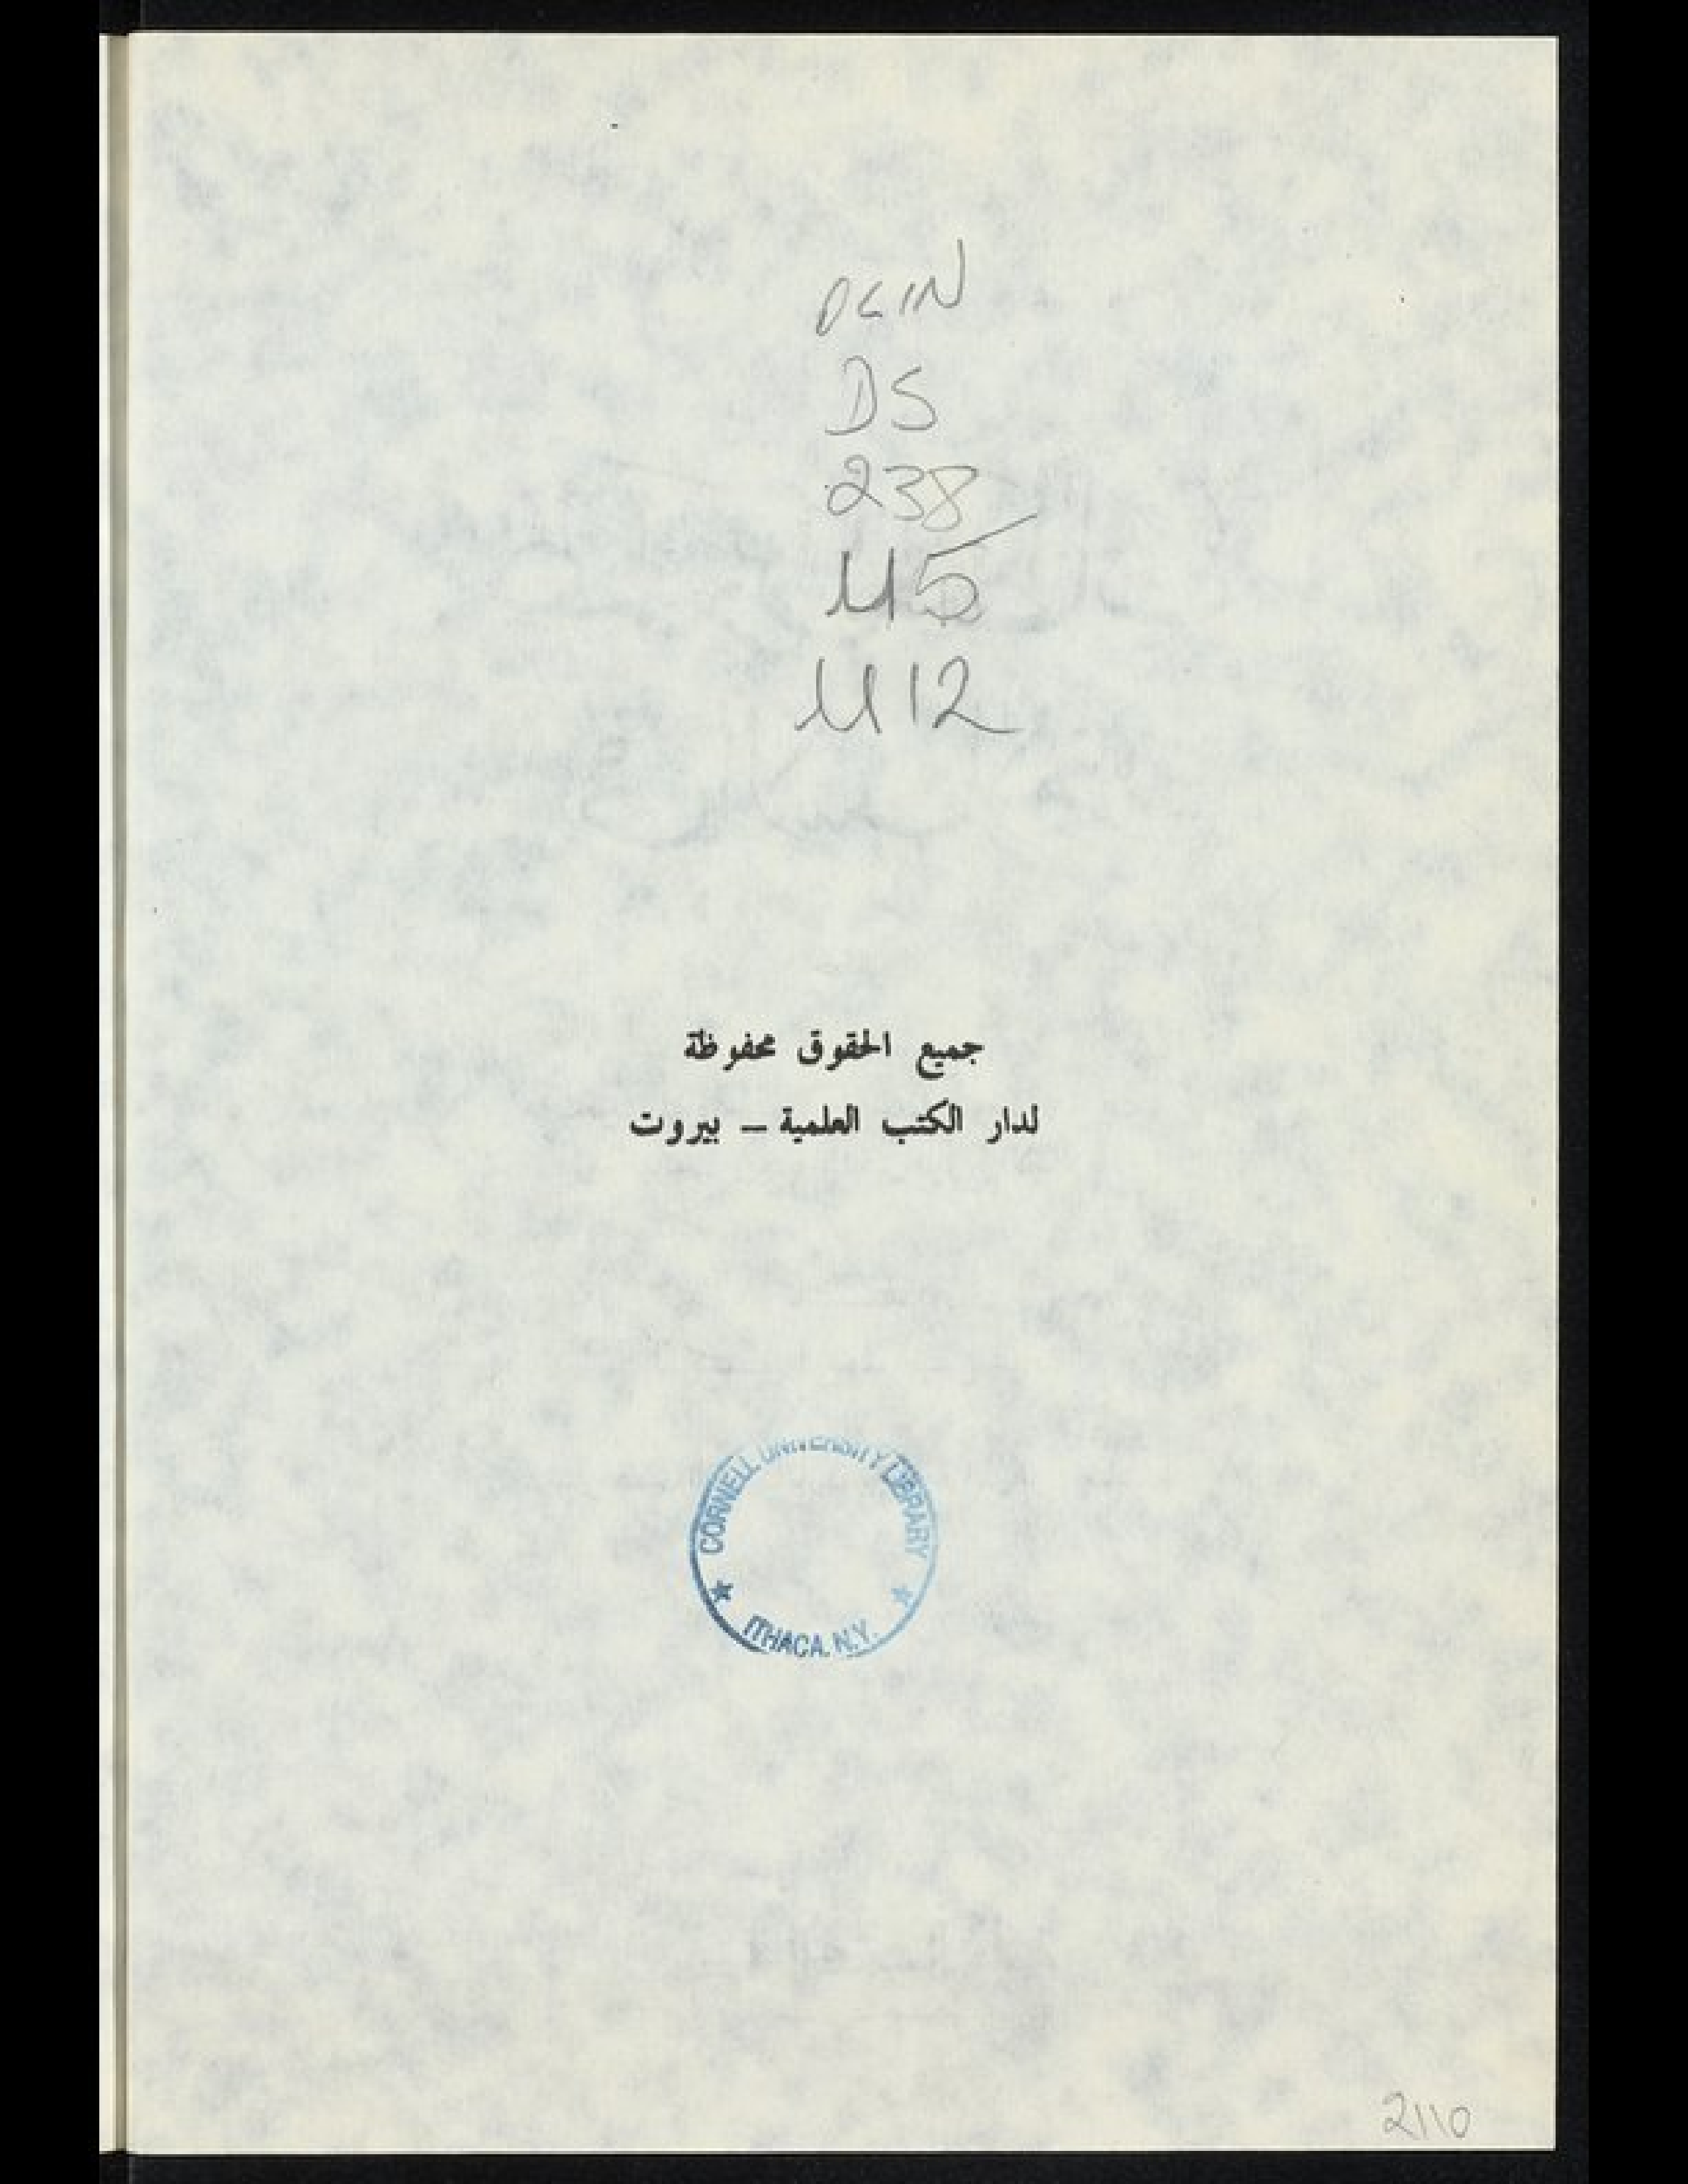 OLIN
DS
238
U5
U12
جميع الحقوق محفوظة
لدار الكتب العلمية – بيروت
CORNELL UNIVERSITY LIBRARY
★ ITHACA. N.Y. ★
2110